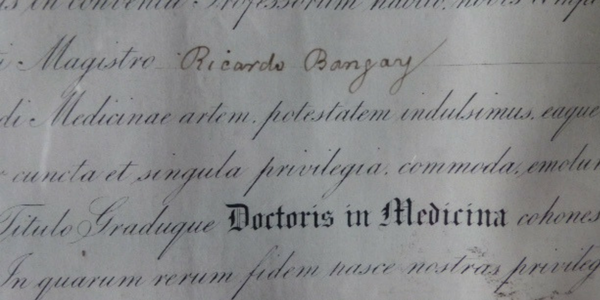 in conventu Professorum habito, nobis
Magistro Ricardo Bangay
di Medicinae artem, potestatem indulsimus, eaque
cuncta et singula privilegia, commoda, emolu
Titulo Graduque Doctoris in Medicina cohones
In quarum rerum fidem hasce nostras privileg